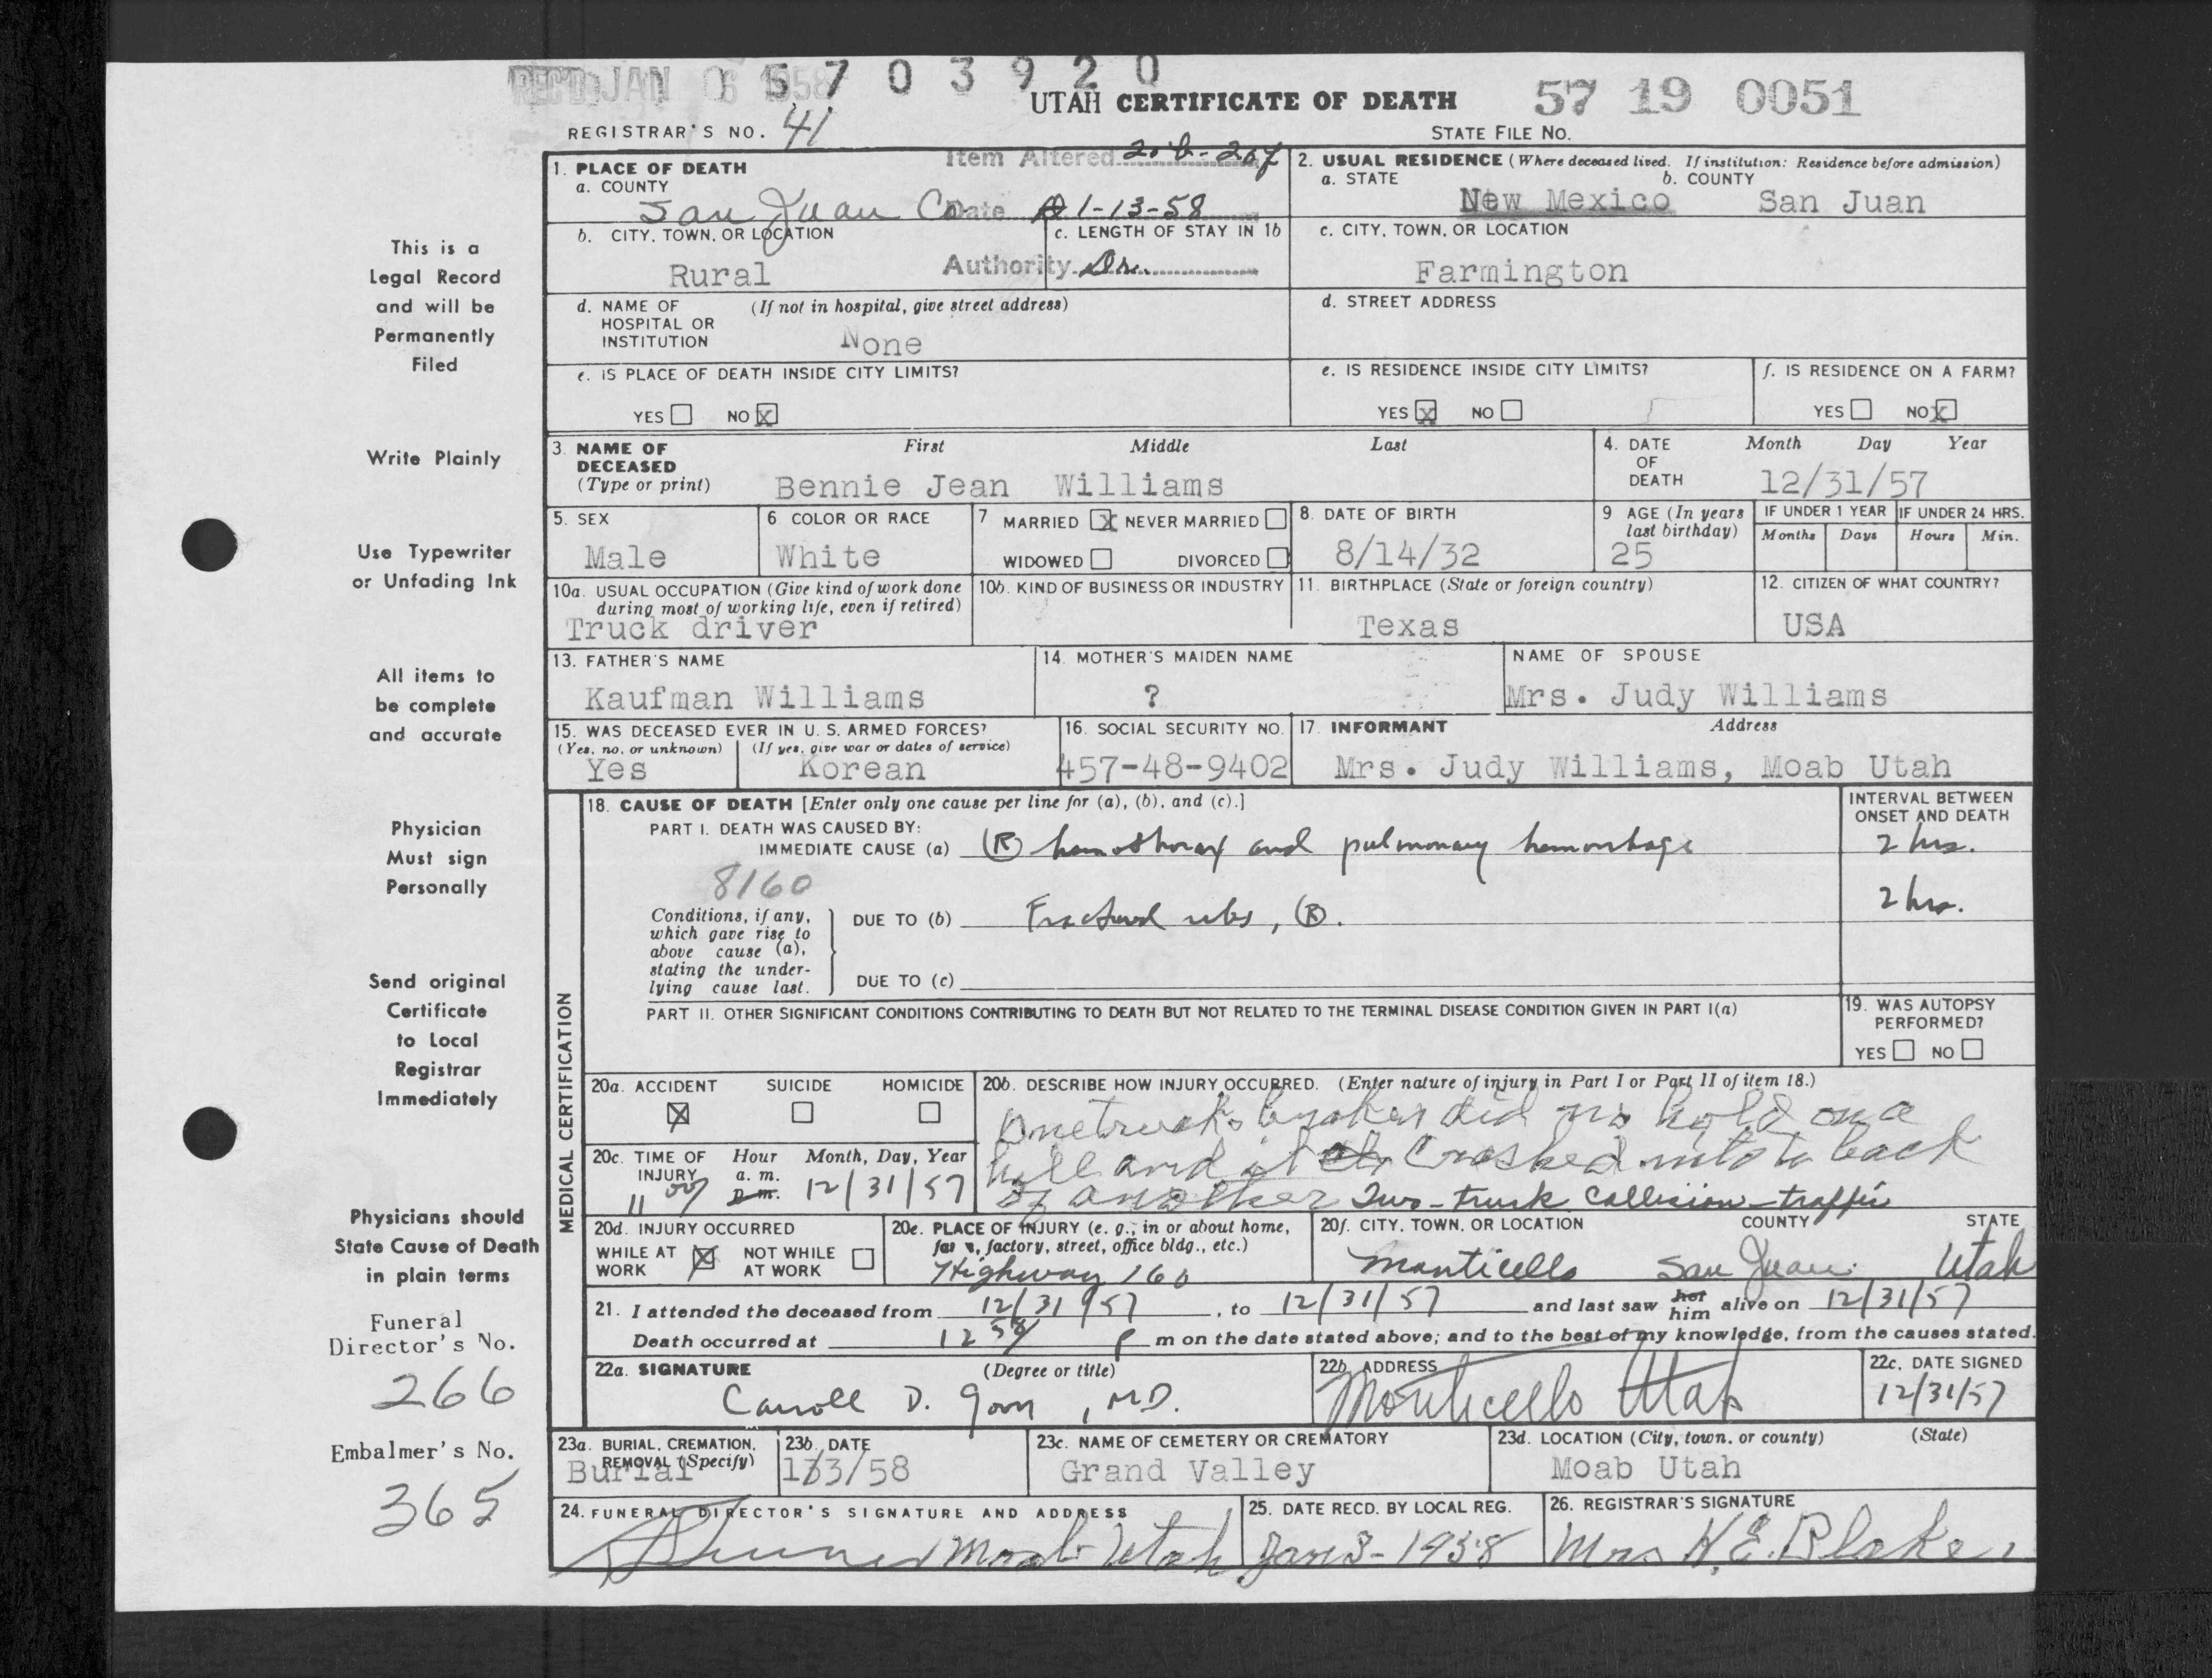 REC'D JAN 6 1958
5 7 0 3 9 2 0
UTAH CERTIFICATE OF DEATH
57 19 0051
REGISTRAR'S NO. 41
STATE FILE NO.
Item Altered 20b-20f
Date 1-13-58
Authority Dr.
1. PLACE OF DEATH
a. COUNTY
San Juan Co
2. USUAL RESIDENCE (Where deceased lived. If institution: Residence before admission)
a. STATE b. COUNTY
New Mexico San Juan
b. CITY, TOWN, OR LOCATION
Rural
c. LENGTH OF STAY IN 1b
c. CITY, TOWN, OR LOCATION
Farmington
d. NAME OF (If not in hospital, give street address)
HOSPITAL OR
INSTITUTION
None
d. STREET ADDRESS
e. IS PLACE OF DEATH INSIDE CITY LIMITS?
YES NO X
e. IS RESIDENCE INSIDE CITY LIMITS?
YES X NO
f. IS RESIDENCE ON A FARM?
YES NO X
3. NAME OF DECEASED (Type or print)
First Middle Last
Bennie Jean Williams
4. DATE OF DEATH
Month Day Year
12/31/57
5. SEX
Male
6. COLOR OR RACE
White
7 MARRIED X NEVER MARRIED
WIDOWED DIVORCED
8. DATE OF BIRTH
8/14/32
9 AGE (In years last birthday)
25
IF UNDER 1 YEAR
Months Days
IF UNDER 24 HRS.
Hours Min.
10a. USUAL OCCUPATION (Give kind of work done
during most of working life, even if retired)
Truck driver
10b. KIND OF BUSINESS OR INDUSTRY
11. BIRTHPLACE (State or foreign country)
Texas
12. CITIZEN OF WHAT COUNTRY?
USA
13. FATHER'S NAME
Kaufman Williams
14. MOTHER'S MAIDEN NAME
?
NAME OF SPOUSE
Mrs. Judy Williams
15. WAS DECEASED EVER IN U. S. ARMED FORCES?
(Yes, no, or unknown) (If yes, give war or dates of service)
Yes Korean
16. SOCIAL SECURITY NO.
457-48-9402
17. INFORMANT Address
Mrs. Judy Williams, Moab Utah
MEDICAL CERTIFICATION
18. CAUSE OF DEATH [Enter only one cause per line for (a), (b), and (c).]
INTERVAL BETWEEN
ONSET AND DEATH
PART I. DEATH WAS CAUSED BY:
IMMEDIATE CAUSE (a) (R) hemothorax and pulmonary hemorrhage 2 hrs.
8160
Conditions, if any,
which gave rise to
above cause (a),
stating the under-
lying cause last.
DUE TO (b) Fractured ribs, (R). 2 hrs.
DUE TO (c)
PART II. OTHER SIGNIFICANT CONDITIONS CONTRIBUTING TO DEATH BUT NOT RELATED TO THE TERMINAL DISEASE CONDITION GIVEN IN PART I(a)
19. WAS AUTOPSY
PERFORMED?
YES NO
20a. ACCIDENT SUICIDE HOMICIDE
X
20b. DESCRIBE HOW INJURY OCCURRED. (Enter nature of injury in Part I or Part II of item 18.)
One trucks brakes did no hold on a
hill and it crashed into to back
of another Two-truck collision-traffic
20c. TIME OF INJURY
Hour Month, Day, Year
a. m.
p. m.
11 00 12/31/57
20d. INJURY OCCURRED
WHILE AT WORK X NOT WHILE AT WORK
20e. PLACE OF INJURY (e. g., in or about home,
farm, factory, street, office bldg., etc.)
Highway 160
20f. CITY, TOWN, OR LOCATION COUNTY STATE
Monticello San Juan Utah
21. I attended the deceased from 12/31/57, to 12/31/57 and last saw her him alive on 12/31/57
Death occurred at 12 58 P m on the date stated above; and to the best of my knowledge, from the causes stated.
22a. SIGNATURE (Degree or title)
Carroll D. Goon, M.D.
22b. ADDRESS
Monticello Utah
22c. DATE SIGNED
12/31/57
23a. BURIAL, CREMATION,
REMOVAL (Specify)
Burial
23b. DATE
1/3/58
23c. NAME OF CEMETERY OR CREMATORY
Grand Valley
23d. LOCATION (City, town, or county) (State)
Moab Utah
24. FUNERAL DIRECTOR'S SIGNATURE AND ADDRESS
Moab Utah
25. DATE RECD. BY LOCAL REG.
Jan 3-1958
26. REGISTRAR'S SIGNATURE
Mrs H. E. Blake
This is a
Legal Record
and will be
Permanently
Filed
Write Plainly
Use Typewriter
or Unfading Ink
All items to
be complete
and accurate
Physician
Must sign
Personally
Send original
Certificate
to Local
Registrar
Immediately
Physicians should
State Cause of Death
in plain terms
Funeral
Director's No.
266
Embalmer's No.
365